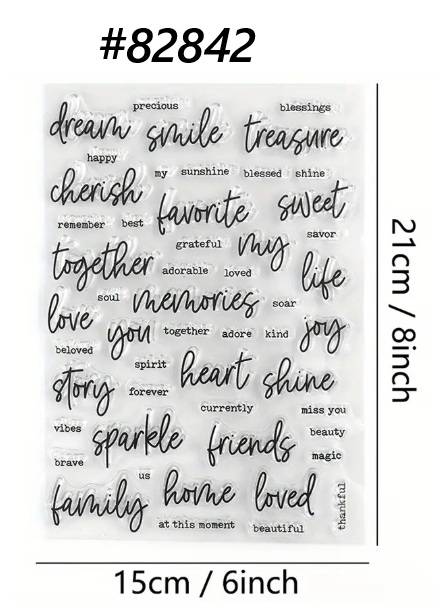 #82842
precious
blessings
dream smile treasure
happy
my sunshine blessed shine
cherish favorite sweet
remember best
savor
grateful my
together adorable loved life
soul memories soar
love you together adore kind joy
beloved
spirit heart shine
story forever
currently miss you
vibes sparkle friends beauty
brave magic
us
family home loved thankful
at this moment beautiful
21cm / 8inch
15cm / 6inch